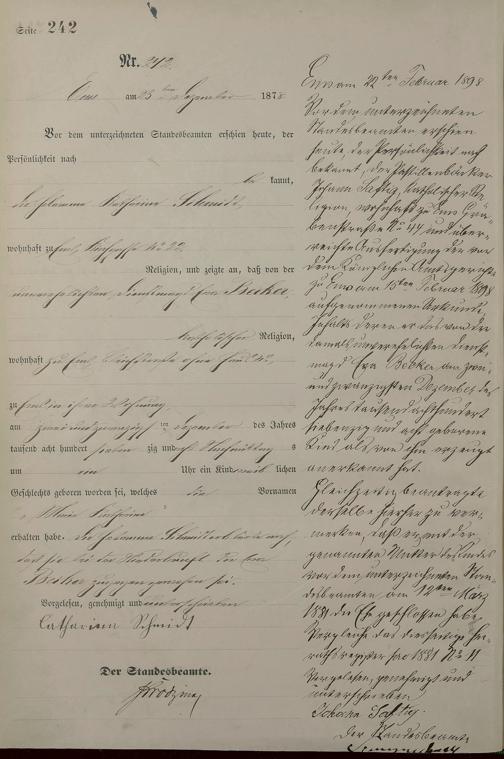 Seite 242
Nr. 242
Ems am 23 ten Dezember 1878
Vor dem unterzeichneten Standesbeamten erschien heute, der
Persönlichkeit nach
be kannt,
die Hebamme Katharina Schmidt,
wohnhaft zu Ems,
Religion, und zeigte an, daß von der
unverehelichten Dienstmagd Eva Becker
katholischer Religion,
wohnhaft zu Ems
zu Ems in ihrer Wohnung
am zwei und zwanzigsten Dezember des Jahres
tausend acht hundert sieben zig und acht Nachmittag s
um ein Uhr ein Kind weib lichen
Geschlechts geboren worden sei, welches die Vornamen
erhalten habe. Die Hebamme Schmidt
daß sie bei der Niederkunft der Eva
Becker zugegen gewesen sei.
Vorgelesen, genehmigt und unterschrieben
Catharina Schmidt
Der Standesbeamte.
Ems am 22 ten Februar 1898
Vor dem unterzeichneten
Standesbeamten erschien
heute, der Persönlichkeit nach
bekannt, der
Johann, katholischer Re
ligion, wohnhaft zu Ems Grä
benstraße No 44 und über-
reichte Ausfertigung der vor
dem Königlichen Amtsgerichte
zu Ems am 15ten Februar 1898
aufgenommenen Urkunde,
Inhalts deren er das von der
damals unverehelichten Dienst-
magd Eva Becker am zwei
undzwanzigsten Dezember des
Jahres tausendachthundert
siebenzig und acht geborene
Kind als von ihm erzeugt
anerkannt hat.
Gleichzeitig beantragte
derselbe hierher zu ver-
merken, daß er mit der
genannten Mutter des Kindes
vor dem unterzeichneten Stan-
desbeamten am 12ten März
1881 die Ehe geschlossen habe.
Vergleiche das diesseitige Hei
rathsregister pro 1881 No 11
Vorgelesen, genehmigt und
unterschrieben
Johann
Der Standesbeamte